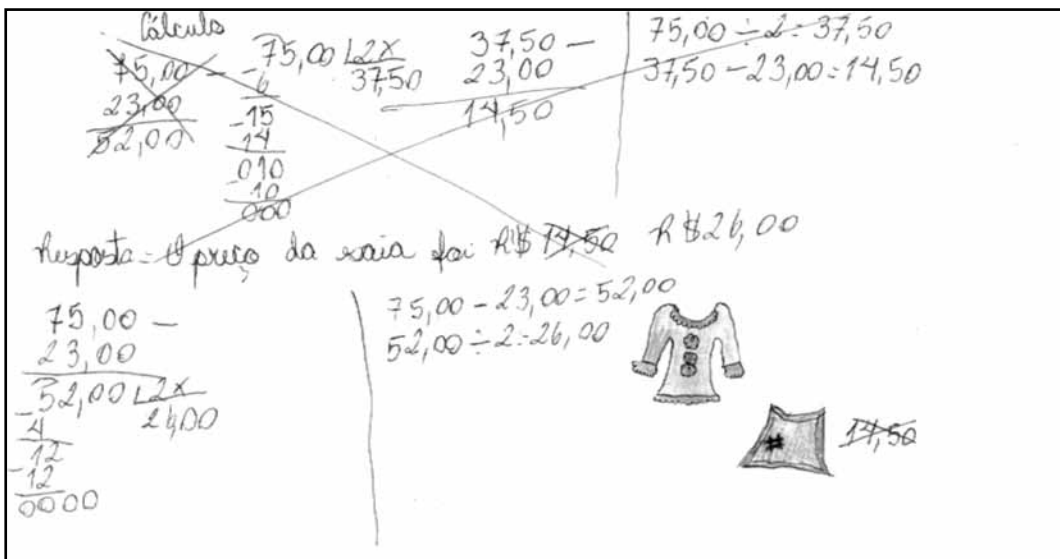 Cálculo
75,00 -
23,00
52,00
75,00 2x
- 6 37,50
- 15
14
- 010
10
000
37,50 -
23,00
14,50
75,00 ÷ 2 = 37,50
37,50 - 23,00 = 14,50
Resposta = O preço da saia foi R$ 14,50 R$26,00
75,00 -
23,00
52,00 2x
- 4 26,00
12
- 12
0000
75,00 - 23,00 = 52,00
52,00 ÷ 2 = 26,00
#
14,50